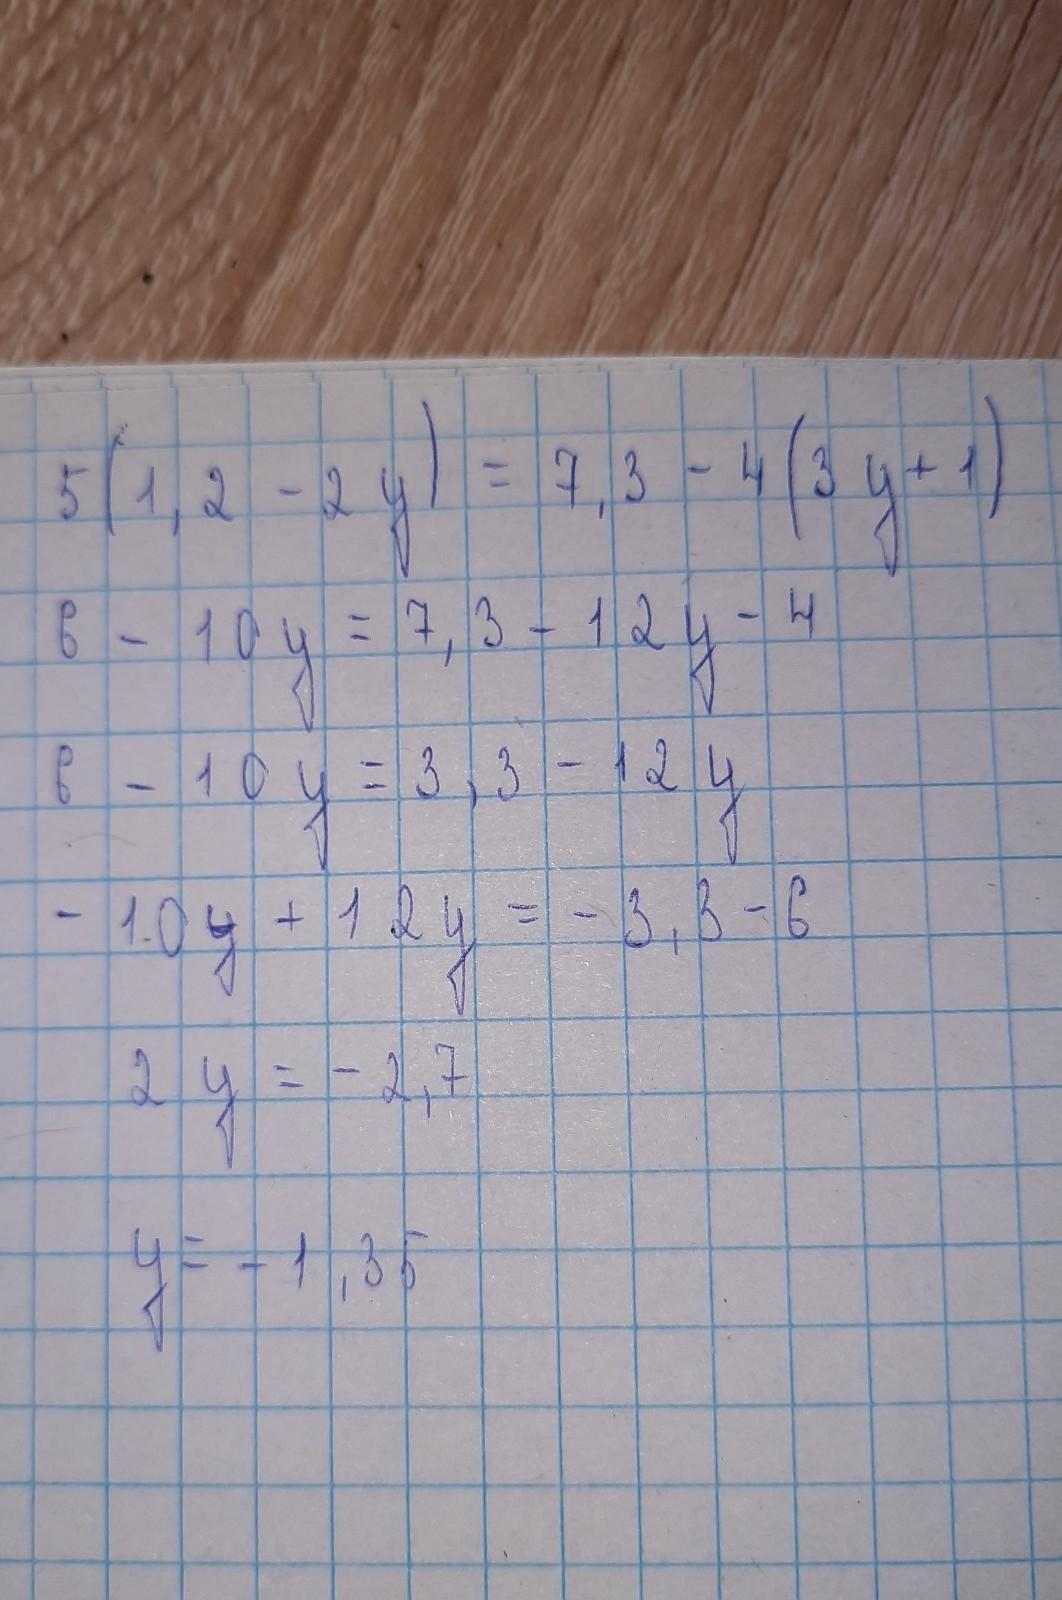 5(1,2 - 2y) = 7,3 - 4(3y + 1)
6 - 10y = 7,3 - 12y - 4
6 - 10y = 3,3 - 12y
- 10y + 12y = - 3,3 - 6
2y = - 2,7
y = - 1,35